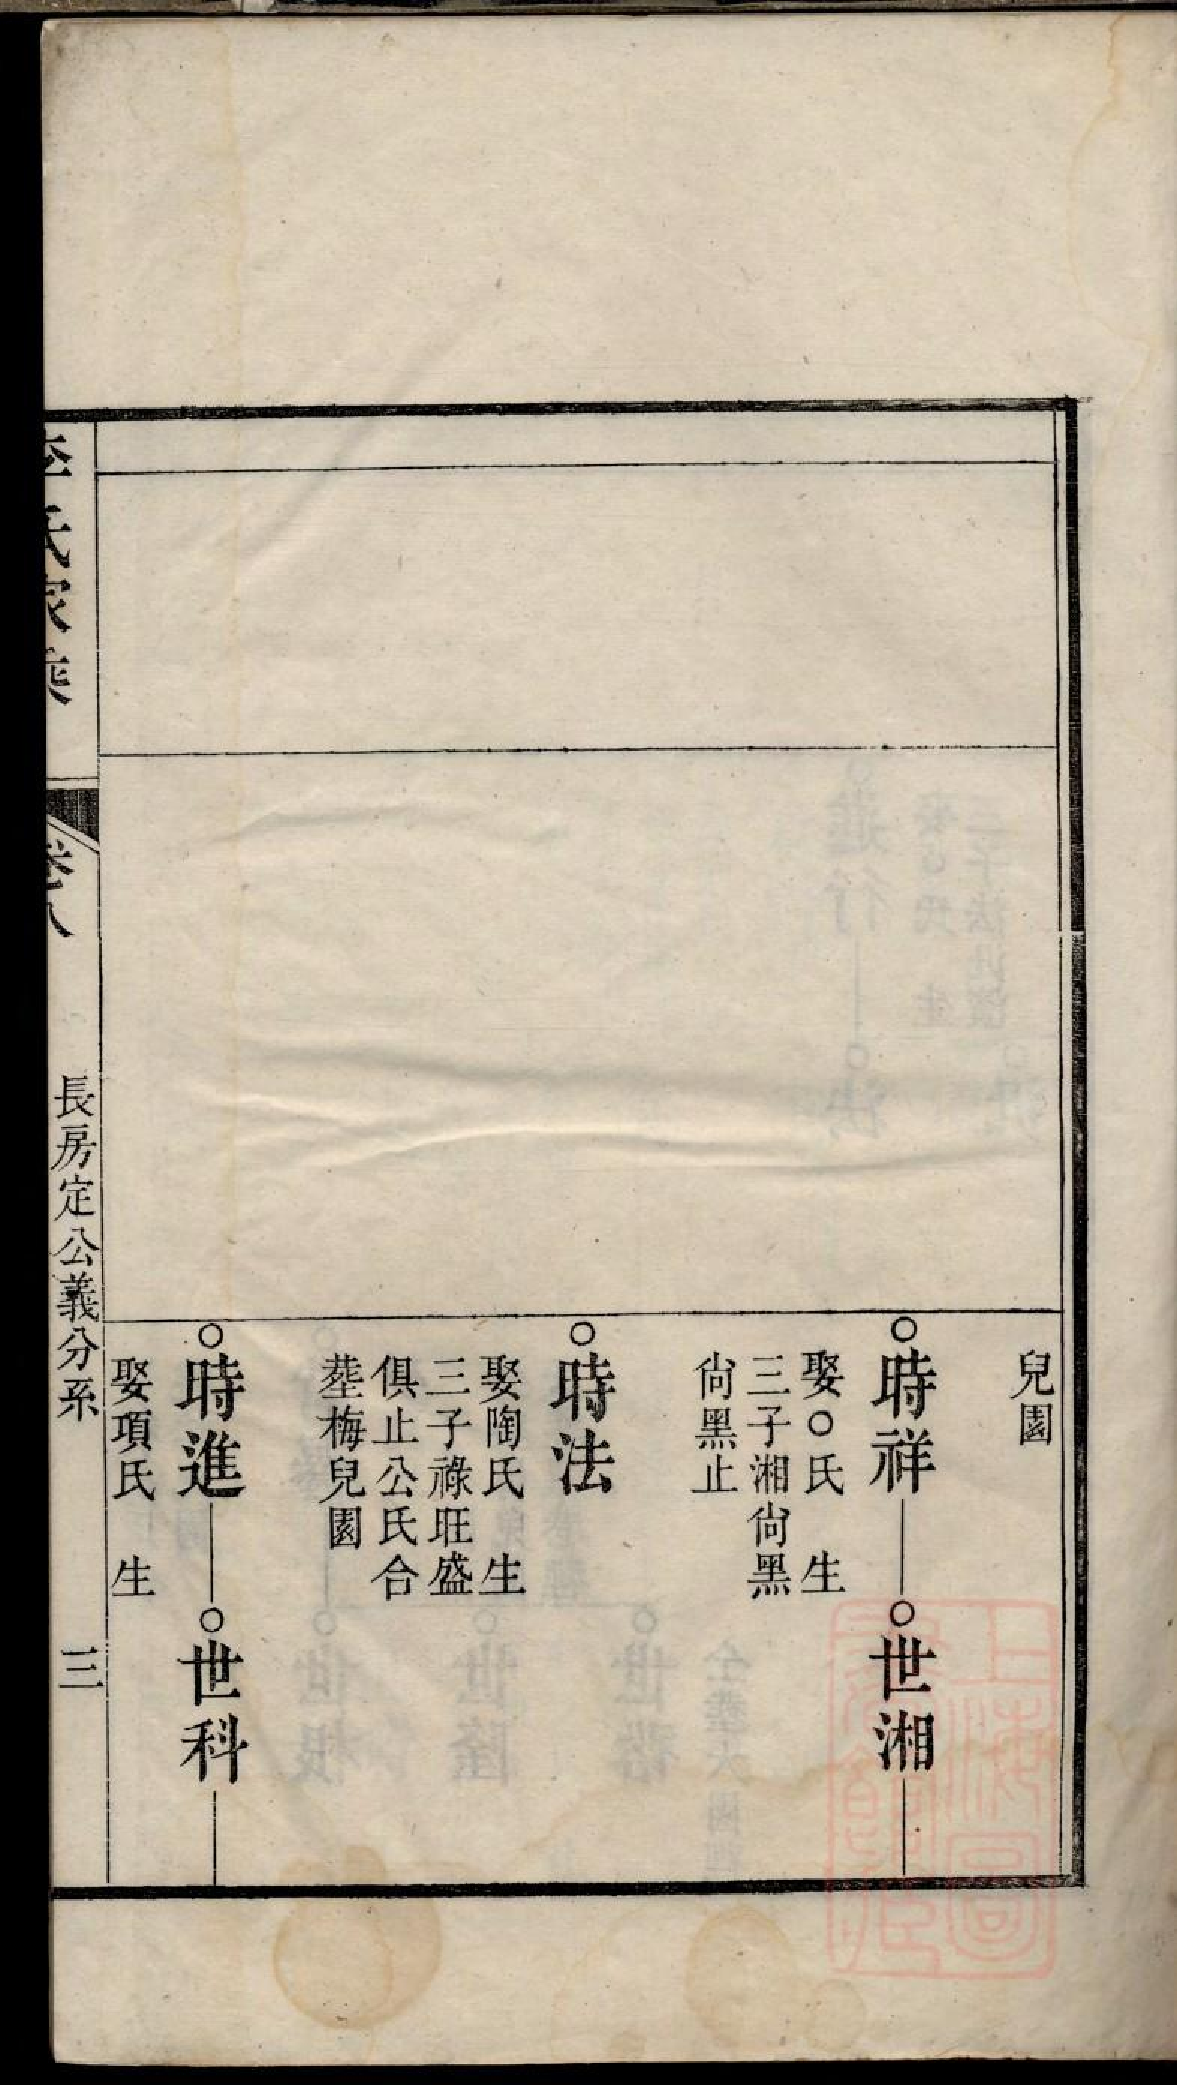 兒園
○時祥
○世湘
娶○氏 生
三子湘尙黑
尙黑止
○時法
娶陶氏 生
三子祿旺盛
俱止公氏合
塟梅兒園
○時進
○世科
娶項氏 生
李氏家乘
卷八
長房定公義分系
三